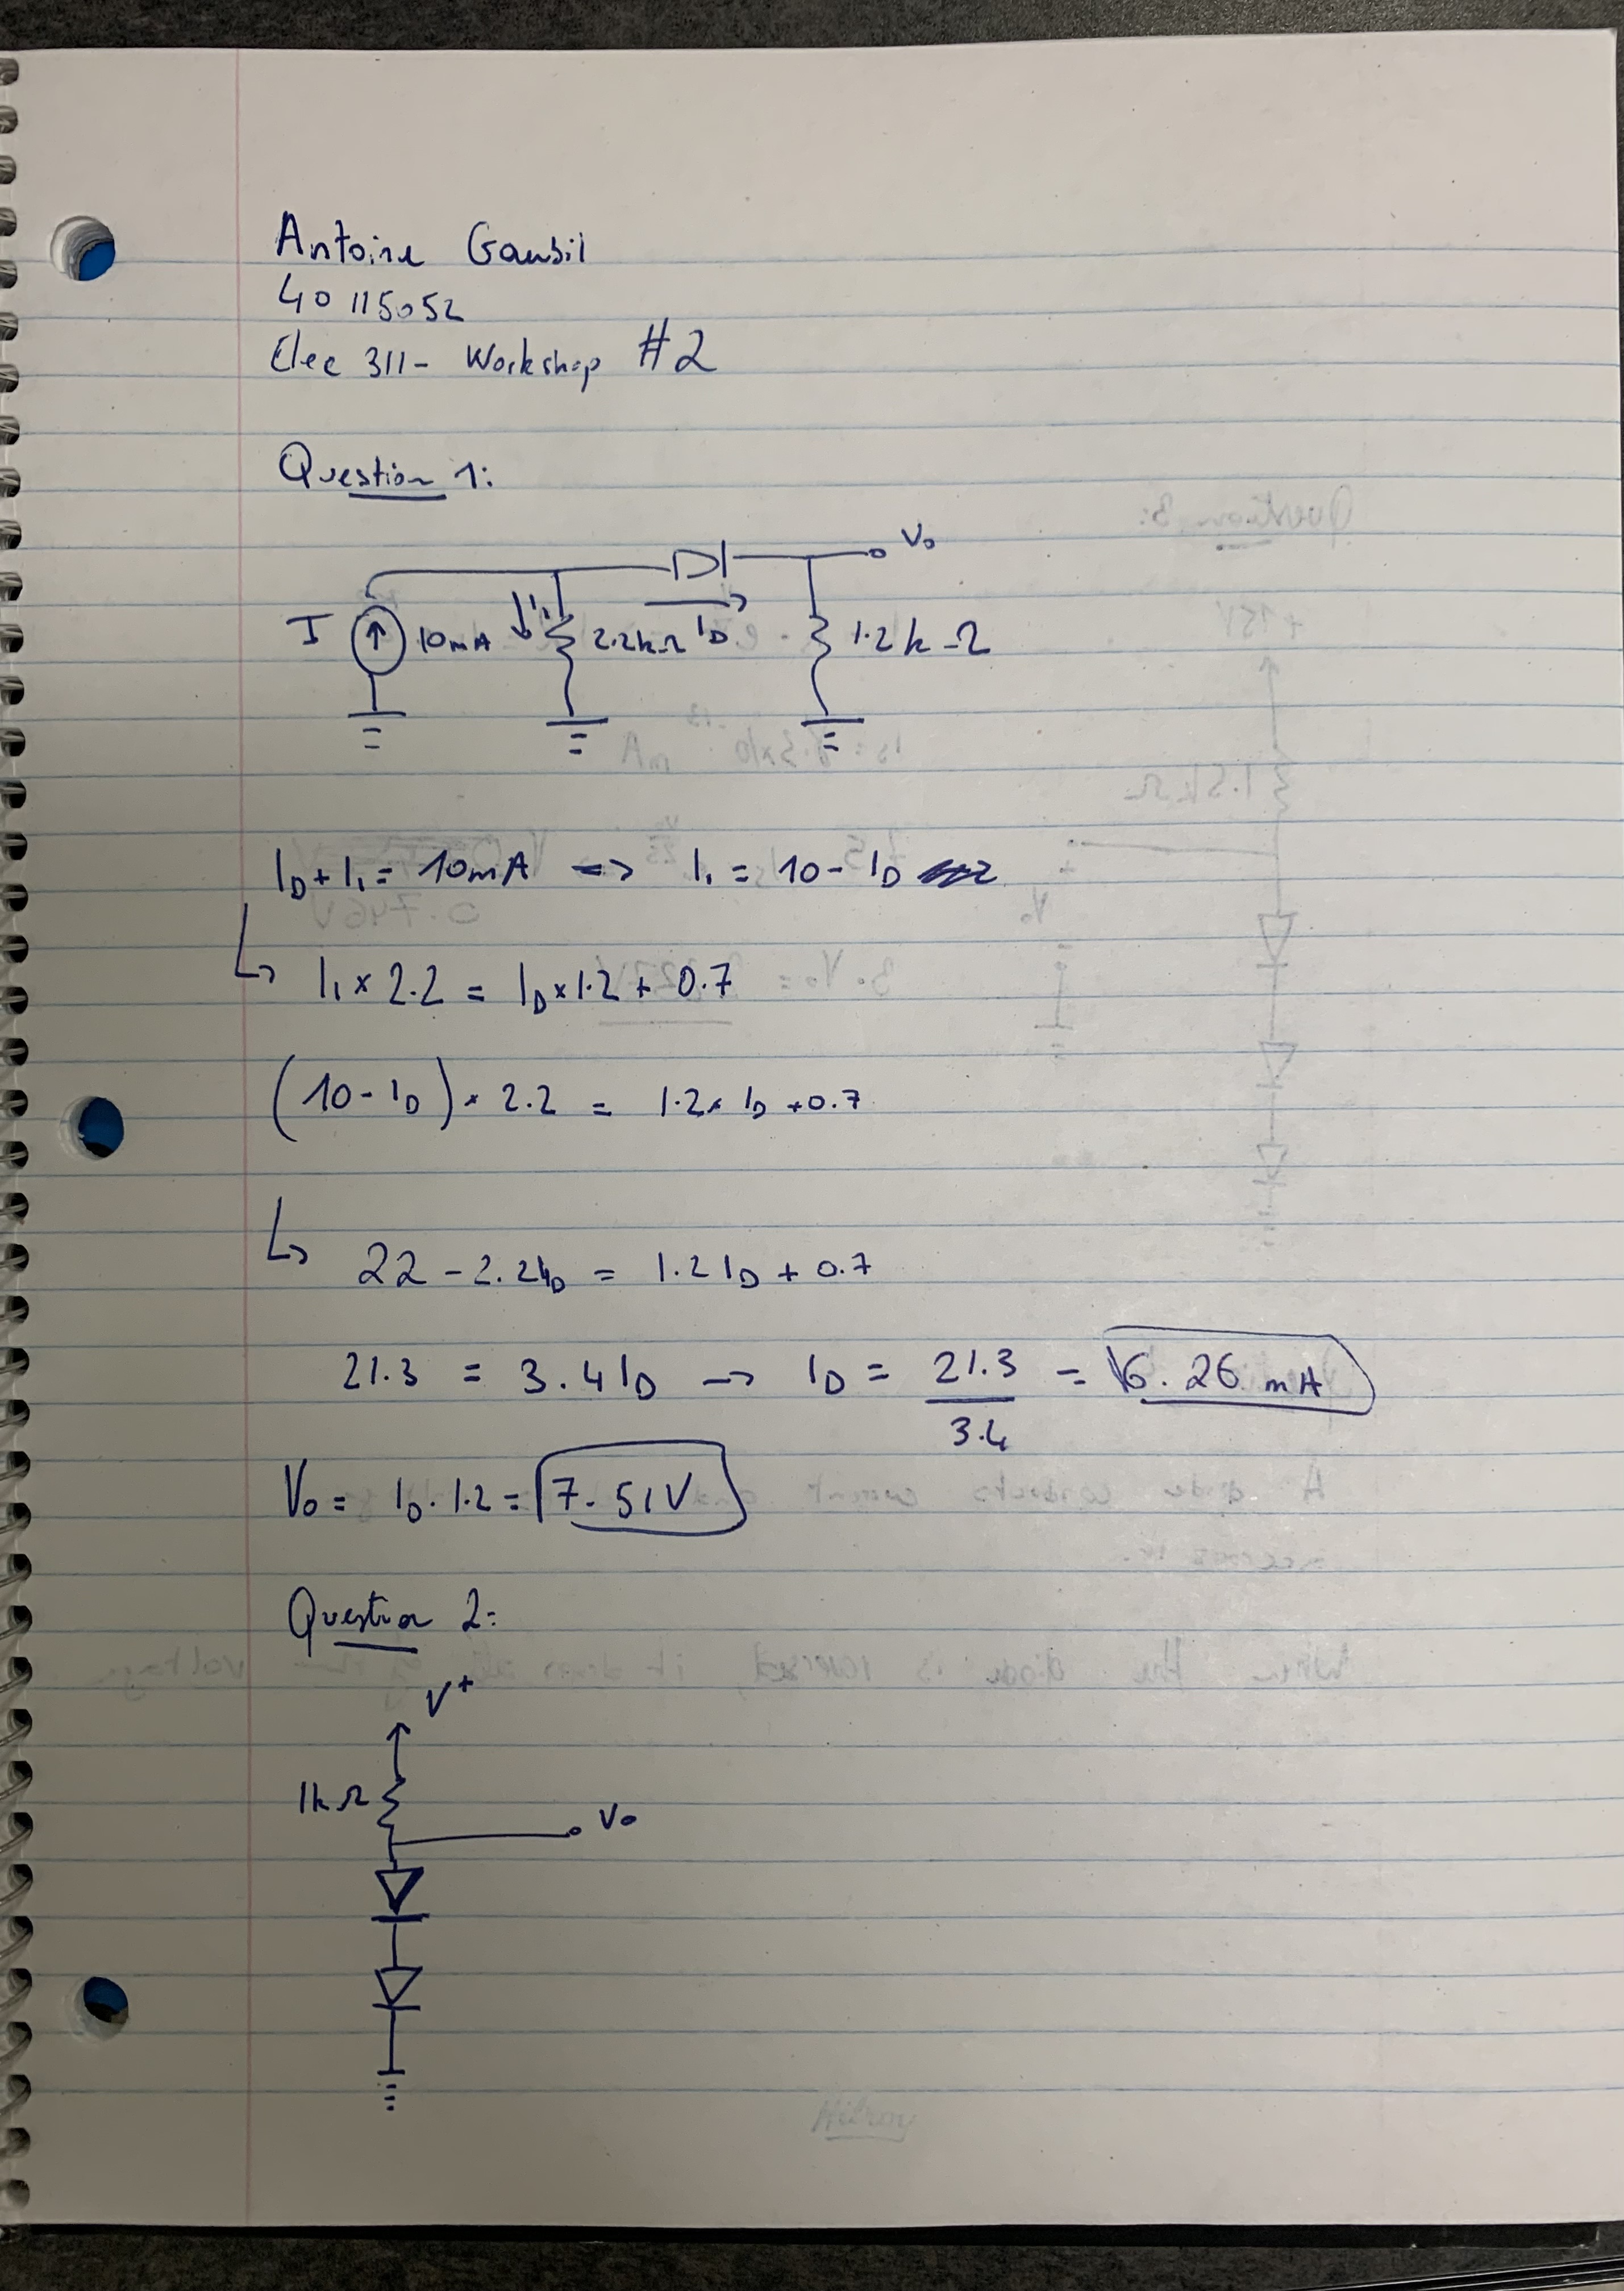 Antoine Gaubil
40115052
Elec 311- Workshop #2
Question 1:
V₀
I 10mA I₁ 2.2kΩ I_D 1.2kΩ
I_D + I₁ = 10mA -> I₁ = 10 - I_D
↳ I₁ × 2.2 = I_D × 1.2 + 0.7
(10 - I_D) × 2.2 = 1.2 × I_D + 0.7
↳ 22 - 2.2I_D = 1.2 I_D + 0.7
21.3 = 3.4 I_D -> I_D = 21.3/3.4 = 6.26 mA
V₀ = I_D · 1.2 = 7.51V
Question 2:
V+
1kΩ
V₀
Hilroy